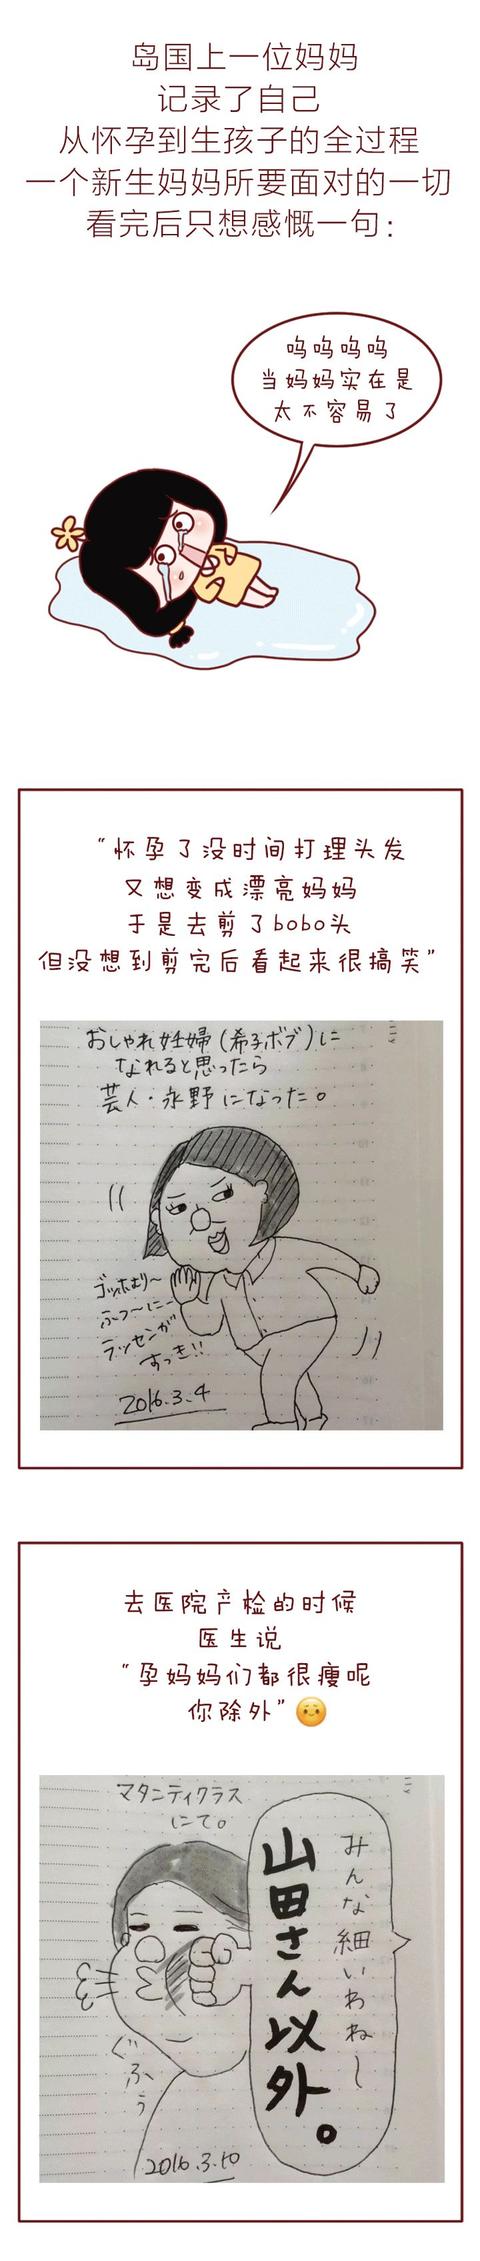 岛国上一位妈妈
记录了自己
从怀孕到生孩子的全过程
一个新生妈妈所要面对的一切
看完后只想感慨一句：
呜呜呜呜
当妈妈实在是
太不容易了
“怀孕了没时间打理头发
又想变成漂亮妈妈
于是去剪了bobo头
但没想到剪完后看起来很搞笑”
おしゃれ妊婦(希子ボブ)に
なれると思ったら
芸人・永野になった。
ゴッホより～
ふつ～に
ラッセンが
すっき!!
2016.3.4
去医院产检的时候
医生说
“孕妈妈们都很瘦呢
你除外”
マタニティクラス
にて。
みんな細いわね～
山田さん以外。
ぐふぅ
2016.3.10